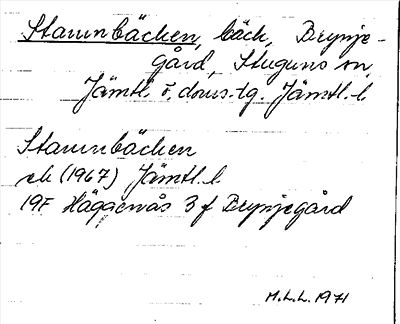 Stavnbäcken, bäck, Brynje-
gård, Stuguns sn,
Jämtl. ö. doms.tg. Jämtl. l
Stavnbäcken
ek (1967) Jämtl. l
19F Häggenås 3 f Brynjegård
M.L.L. 1971